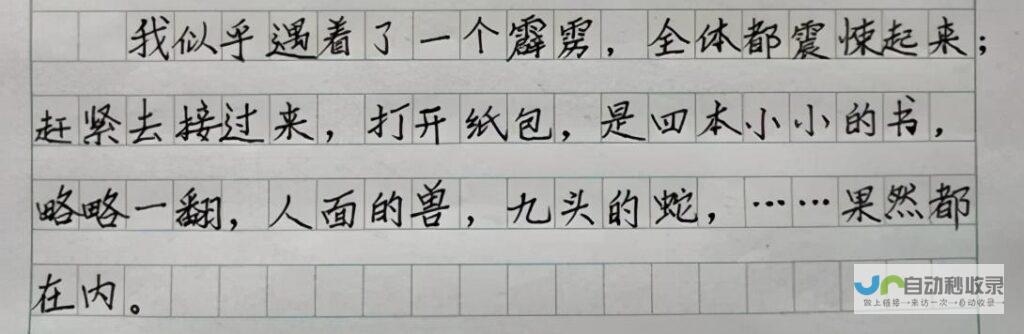 我似乎遇着了一个霹雳，全体都震悚起来；
赶紧去接过来，打开纸包，是四本小小的书，
略略一翻，人面的兽，九头的蛇，……果然都
在内。
自动秒收录
做上链接→来访一次→自动收录